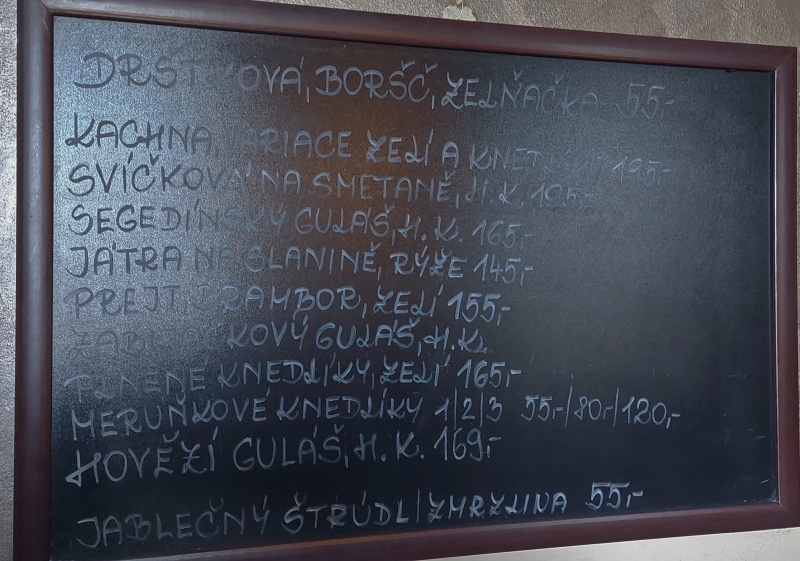 DRŠŤKOVÁ, BORŠČ, ZELŇAČKA 55,-
KACHNA, VARIACE ZELÍ A KNEDLÍKŮ 195,-
SVÍČKOVÁ NA SMETANĚ, H. K. 195,-
SEGEDÍNSKÝ GULÁŠ, H. K. 165,-
JÁTRA NA SLANINĚ, RÝŽE 145,-
PREJT, BRAMBOR, ZELÍ 155,-
KOVÝ GULÁŠ, H.K.
PLNĚNÉ KNEDLÍKY, ZELÍ 165,-
MERUŇKOVÉ KNEDLÍKY 1/2/3 55,-/80,-/120,-
HOVĚZÍ GULÁŠ, H. K. 169,-
JABLEČNÝ ŠTRÚDL/ZMRZLINA 55,-